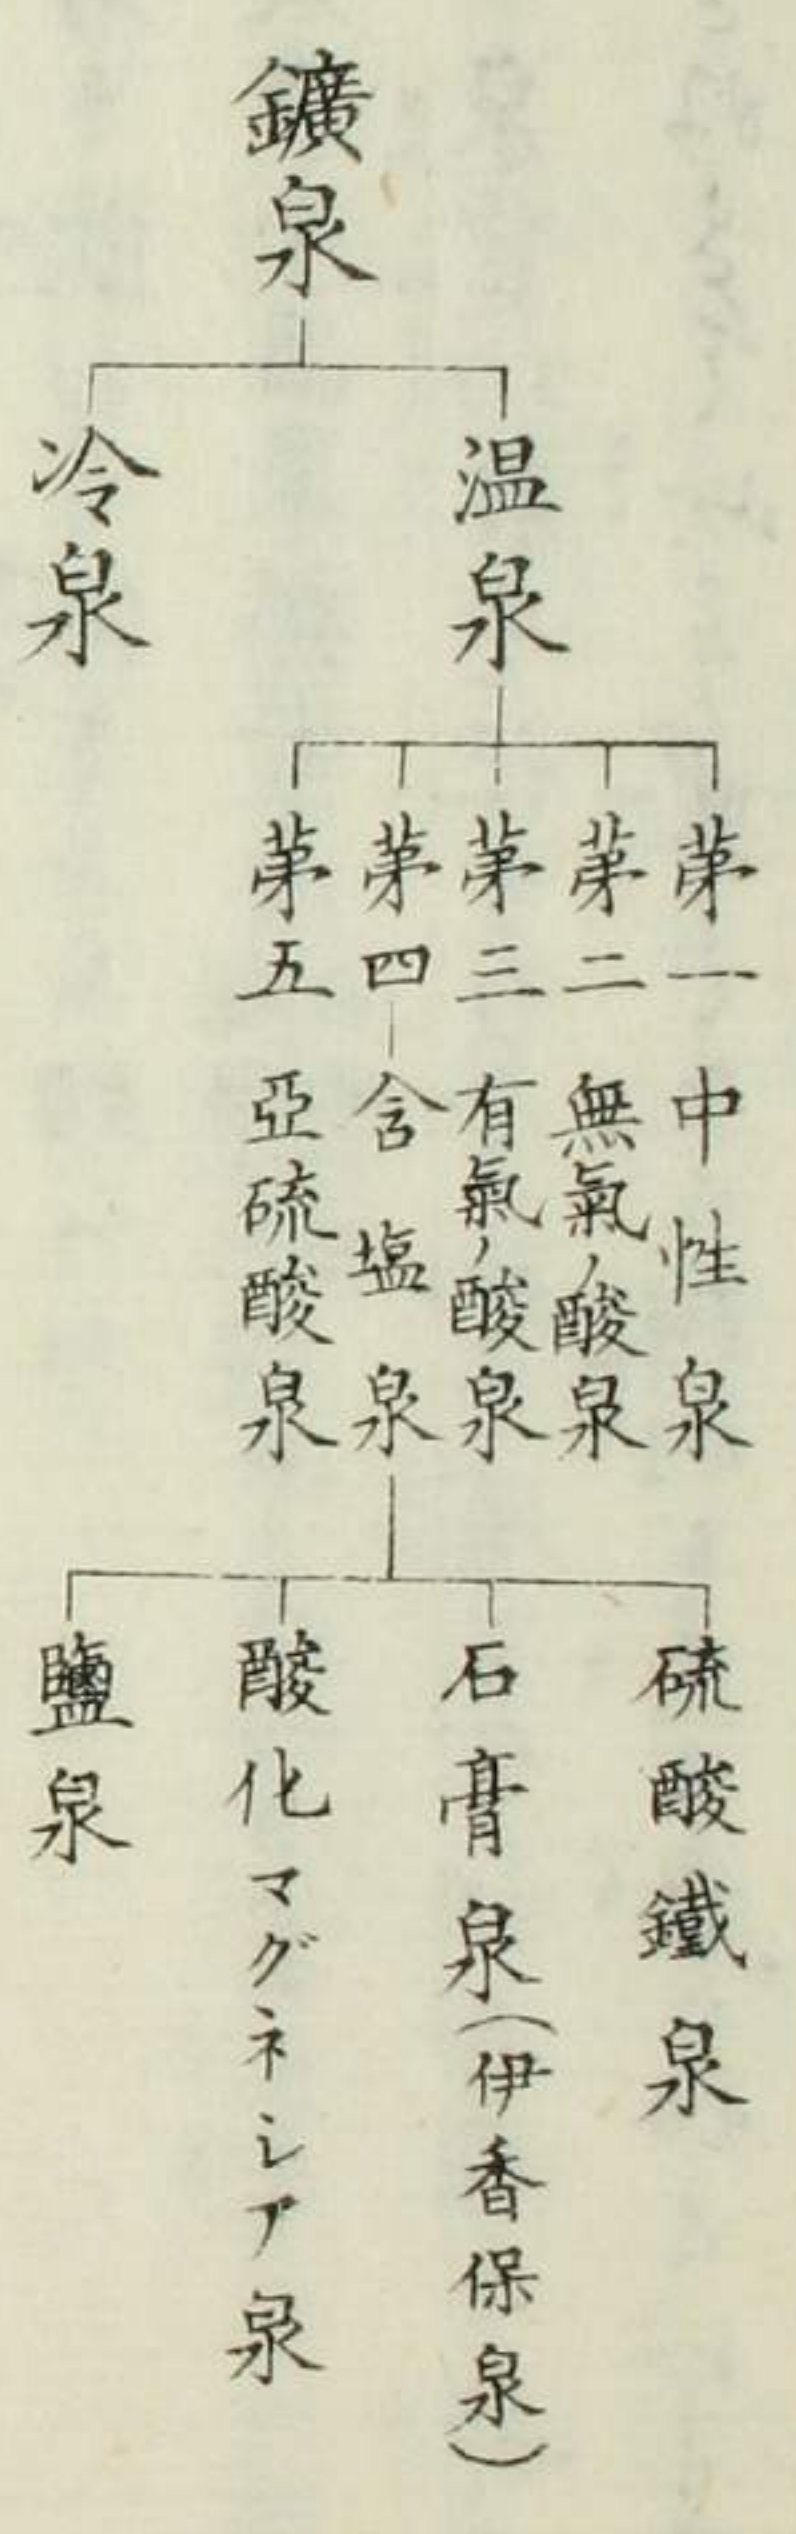 鑛泉
温泉
冷泉
苐一 中性泉
苐二 無氣ノ酸泉
苐三 有氣ノ酸泉
苐四 含塩泉
苐五 亞硫酸泉
硫酸鐵泉
石膏泉(伊香保泉)
酸化マグネシア泉
鹽泉